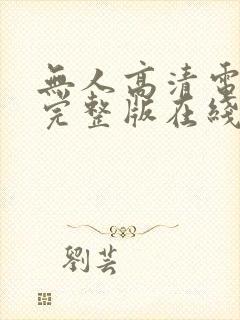 無人高清電
完整版在綫
劉芸